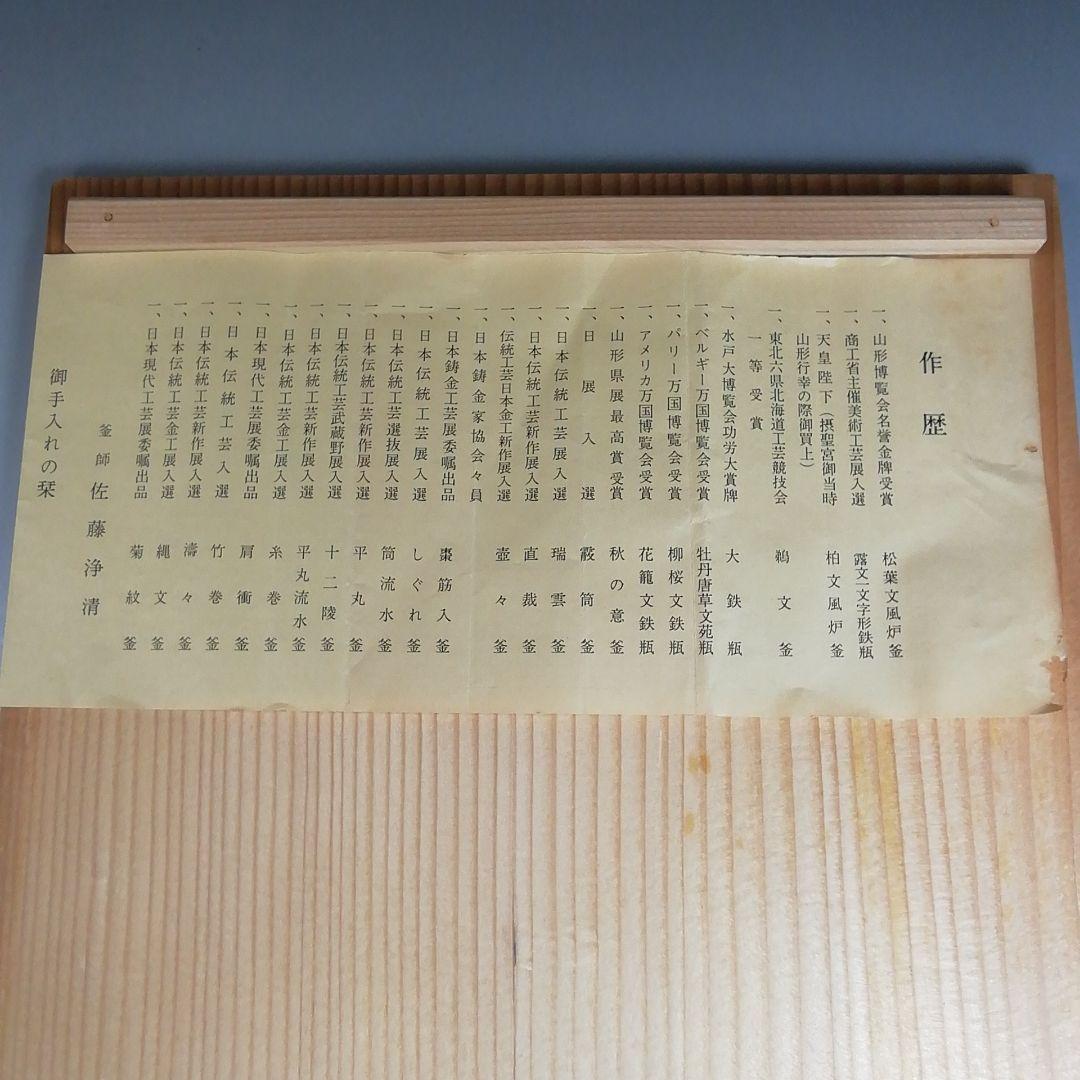 作歴
一、山形博覧会名誉金牌受賞 松葉文風炉釜
一、商工省主催美術工芸展入選 露文一文字形鉄瓶
一、天皇陛下（摂聖宮御当時
山形行幸の際御買上） 柏文風炉釜
一、東北六県北海道工芸競技会
一等受賞 鵜文釜
一、水戸大博覧会功労大賞牌 大鉄瓶
一、ベルギー万国博覧会受賞 牡丹唐草文苑瓶
一、パリー万国博覧会受賞 柳桜文鉄瓶
一、アメリカ万国博覧会受賞 花籠文鉄瓶
一、山形県展最高賞受賞 秋の意釜
一、日展入選 霰筒釜
一、日本伝統工芸展入選 瑞雲釜
一、日本伝統工芸新作展入選 直裁釜
一、伝統工芸日本金工新作展入選 壺々釜
一、日本鋳金家協会々員
一、日本鋳金工芸展委嘱出品 棗筋入釜
一、日本伝統工芸展入選 しぐれ釜
一、日本伝統工芸選抜展入選 筒流水釜
一、日本伝統工芸新作展入選 平丸釜
一、日本伝統工芸武蔵野展入選 十二陵釜
一、日本伝統工芸新作展入選 平丸流水釜
一、日本伝統工芸金工展入選 糸巻釜
一、日本現代工芸展委嘱出品 肩衝釜
一、日本伝統工芸入選 竹巻釜
一、日本伝統工芸新作展入選 濤々釜
一、日本伝統工芸金工展入選 縄文釜
一、日本現代工芸展委嘱出品 菊紋釜
釜師 佐藤浄清
御手入れの栞